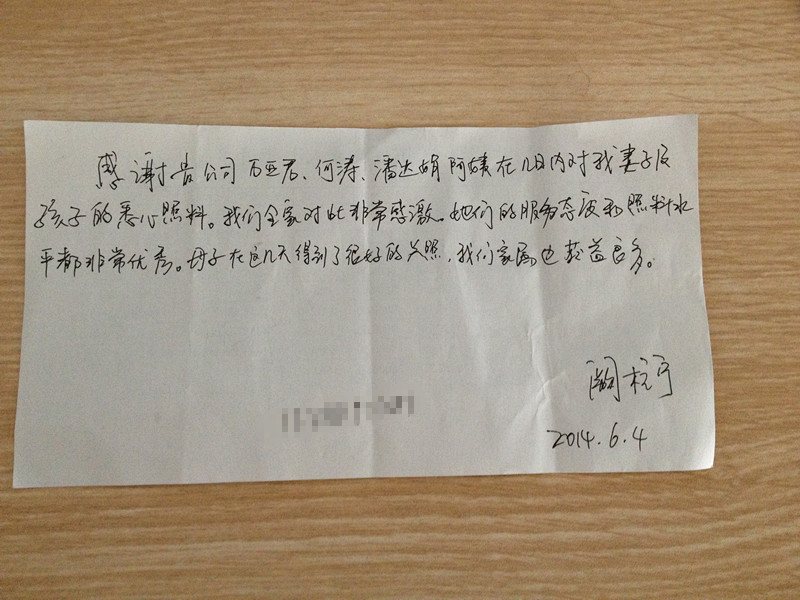 感谢贵公司万亚君、何涛、潘达娟阿姨在几日内对我妻子及
孩子的悉心照料。我们全家对此非常感激。她们的服务态度和照料水
平都非常优秀。母子在这几天得到了很好的关照，我们家属也获益良多。
阚杭宁
2014.6.4